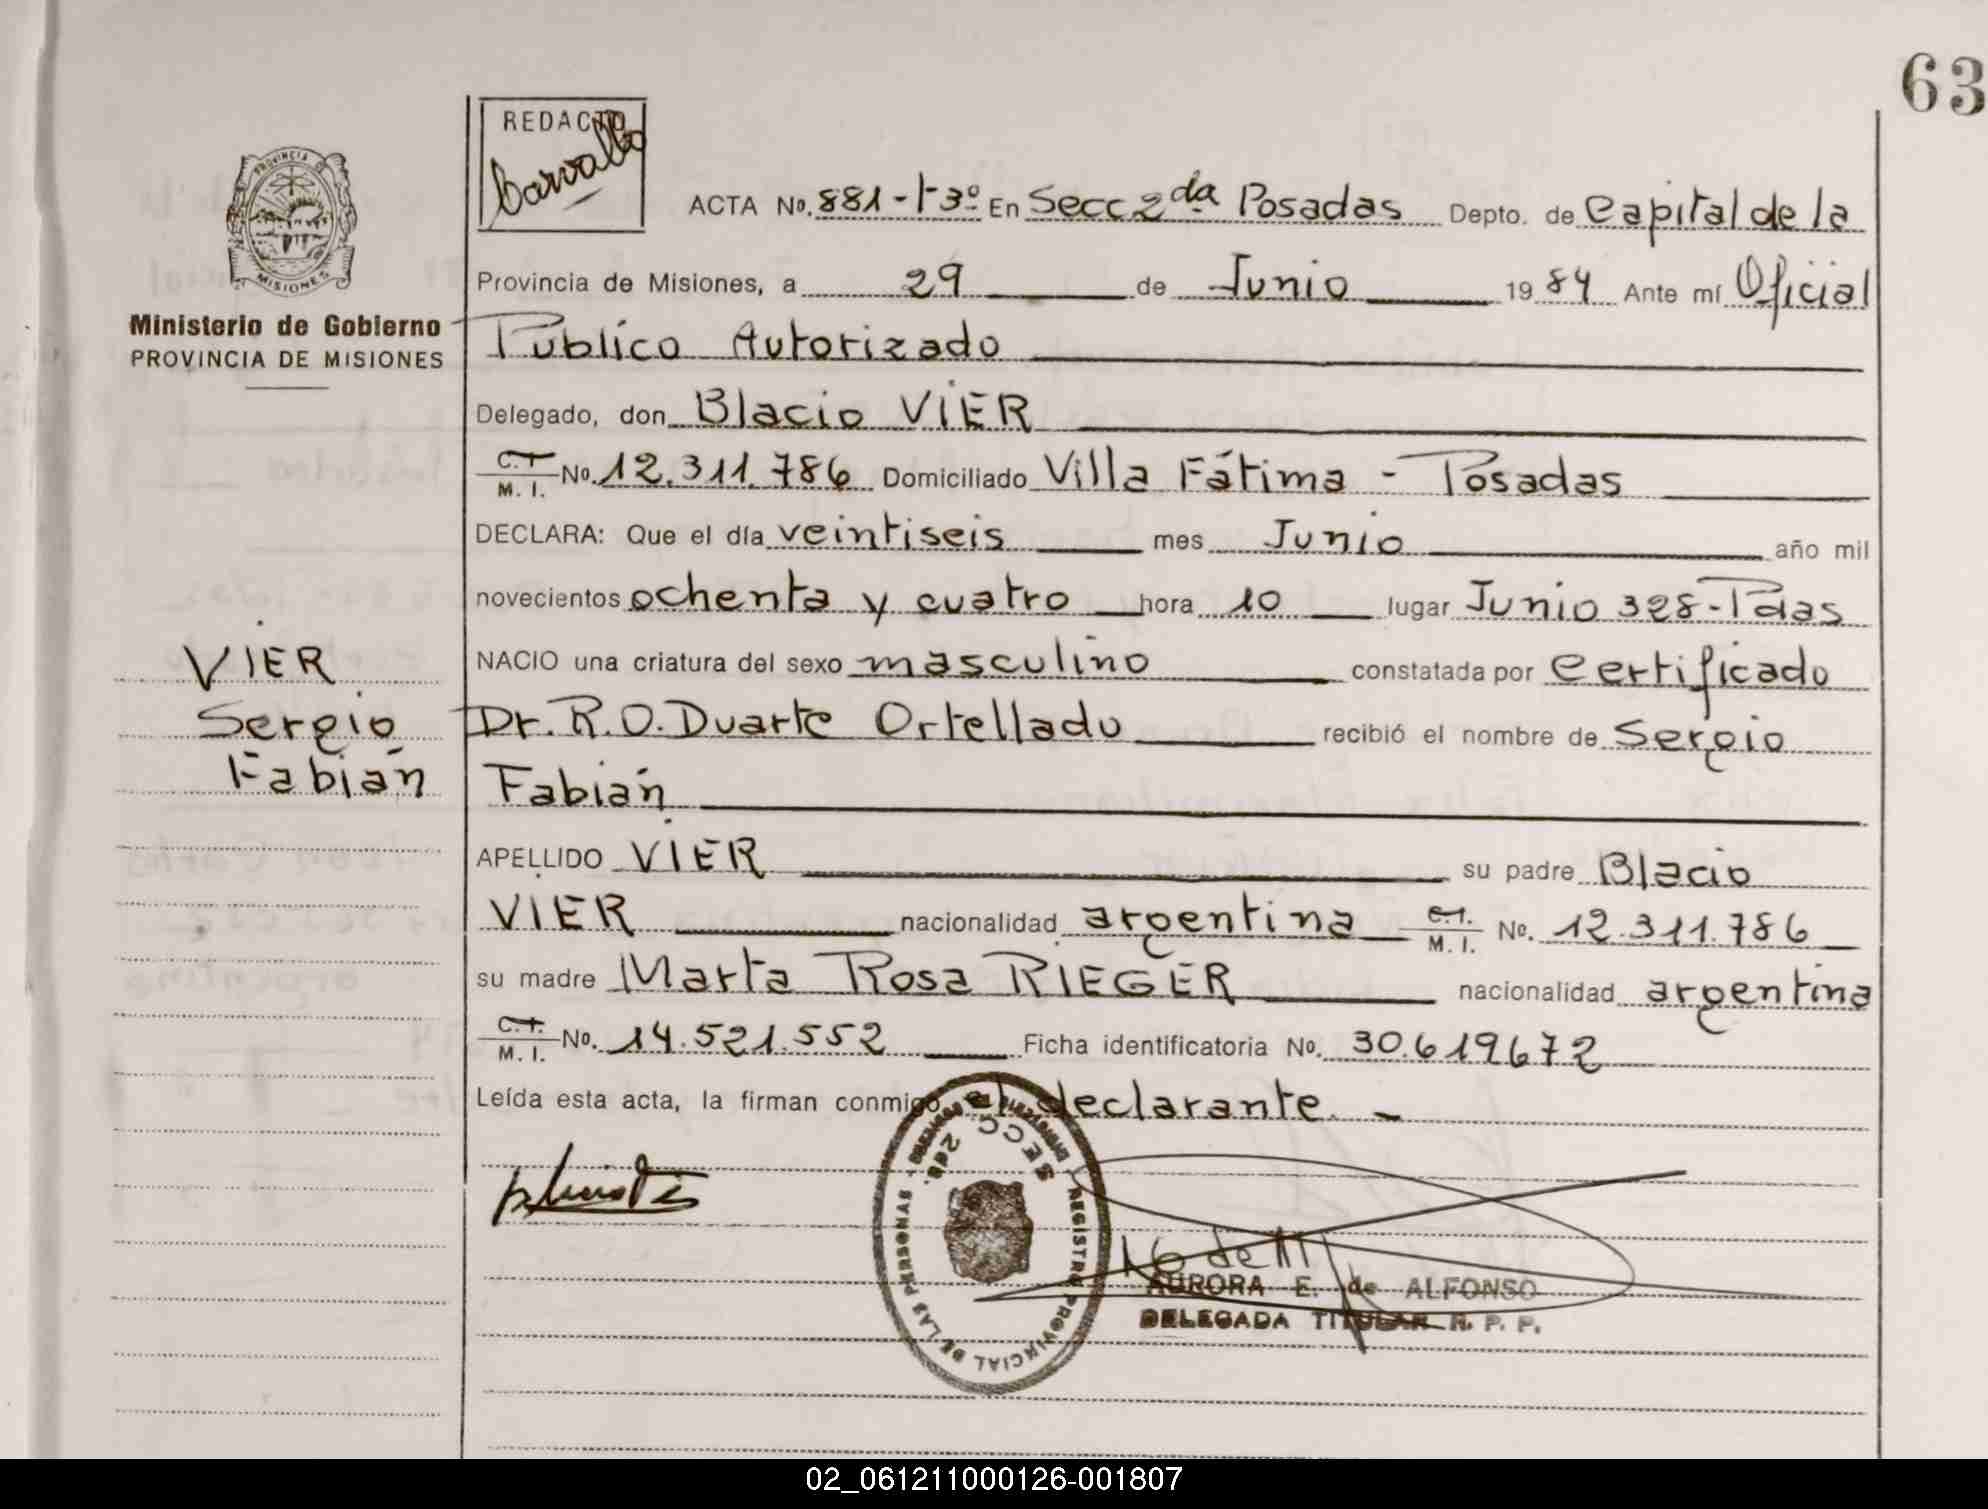 63
REDACTO
Carvallo
ACTA No. 881-t-3º En Secc 2da Posadas Depto. de Capital de la
Provincia de Misiones, a 29 de Junio 1984 Ante mí Oficial
Público Autorizado
Delegado, don Blacio VIER
C.I. M.I. No. 12.311.786 Domiciliado Villa Fátima - Posadas
DECLARA: Que el día veintiseis mes Junio año mil
novecientos ochenta y cuatro hora 10 lugar Junio 328-Pdas
NACIO una criatura del sexo masculino constatada por certificado
Dr. R.O. Duarte Ortellado recibió el nombre de Sergio
Fabián
APELLIDO VIER su padre Blacio
VIER nacionalidad argentina C.I. M.I. No. 12.311.786
su madre Marta Rosa RIEGER nacionalidad argentina
C.I. M.I. No. 14.521.552 Ficha identificatoria No. 30.619672
Leída esta acta, la firman conmigo el declarante.-
PROVINCIA DE
MISIONES
Ministerio de Gobierno
PROVINCIA DE MISIONES
VIER
Sergio
Fabián
SECC. 2da.
REGISTRO PROVINCIAL DE LAS PERSONAS
AURORA E. de ALFONSO
DELEGADA TITULAR R. P. P.
02_061211000126-001807